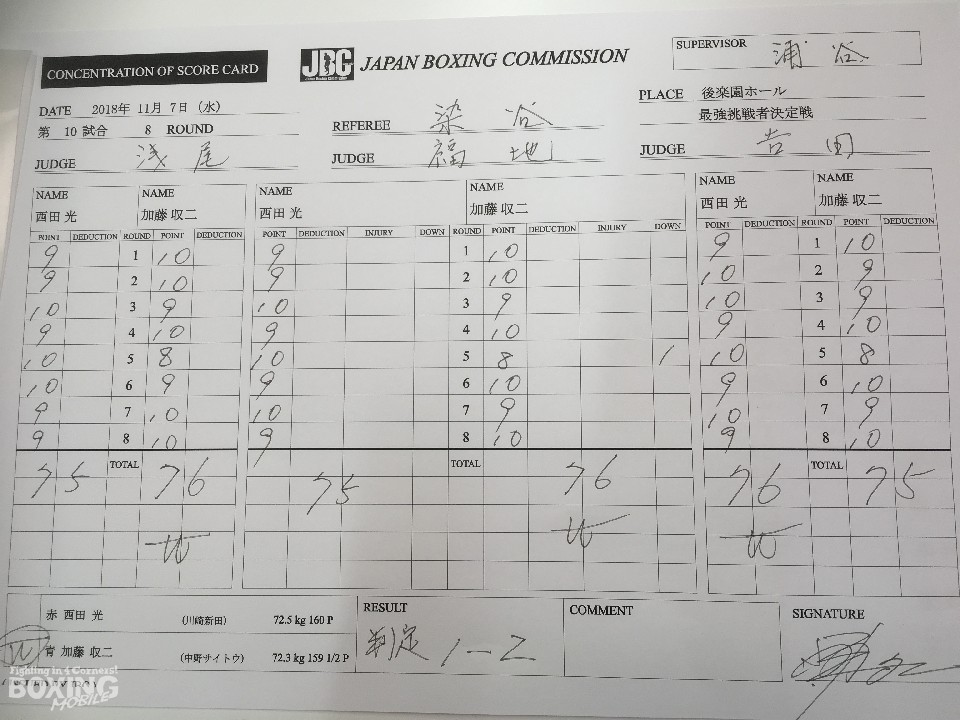 CONCENTRATION OF SCORE CARD
JBC JAPAN BOXING COMMISSION
SUPERVISOR 浦谷
DATE 2018年 11月 7日 (水)
PLACE 後楽園ホール
第 10 試合 8 ROUND
REFEREE 染谷
最強挑戦者決定戦
JUDGE 浅尾
JUDGE 福地
JUDGE 吉田
NAME NAME NAME NAME NAME NAME
西田 光 加藤 収二 西田 光 加藤 収二 西田 光 加藤 収二
POINT DEDUCTION ROUND POINT DEDUCTION POINT DEDUCTION INJURY DOWN ROUND POINT DEDUCTION INJURY DOWN POINT DEDUCTION ROUND POINT DEDUCTION
9 1 10 9 1 10 9 1 10
9 2 10 9 2 10 10 2 9
10 3 9 10 3 9 10 3 9
9 4 10 9 4 10 9 4 10
10 5 8 10 5 8 1 10 5 8
10 6 9 9 6 10 9 6 10
9 7 10 10 7 9 10 7 9
9 8 10 9 8 10 9 8 10
75 TOTAL 76 75 TOTAL 76 76 TOTAL 75
W W W
赤 西田 光 (川崎新田) 72.5 kg 160 P
青 加藤 収二 (中野サイトウ) 72.3 kg 159 1/2 P
W
RESULT
判定 1-2
COMMENT
SIGNATURE
Fighting in 4 Corners!
BOXING
MOBILE